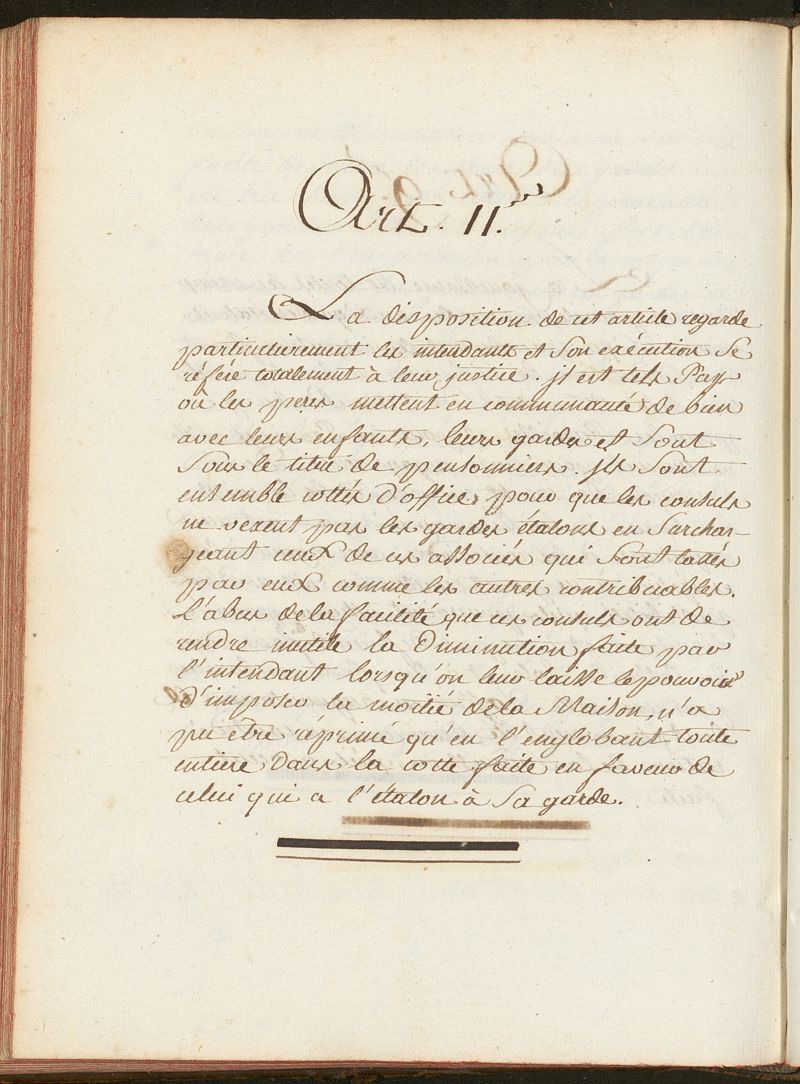 Art. 11.
La disposition de cet article regarde
particulierement les intendants et Son exécution Se
réfère totalement à leur justice. jl est tels Pays
où les peres mettent en communauté de bien
avec leurs enfants, leurs gardes et Sont
Sous le titre de pensonniers. jls Sont
ensemble cottés d'office, pour que les consuls
ne vexent pas les gardes étalons en Surchar-
geant ceux de ces associés qui Sont taxés
par eux comme les autres contribuables.
L'abus de la facilité que ces consuls ont de
rendre inutile la Diminution faite par
l'intendant lorsqu'on leur laisse le pouvoir
d'imposer la moitié de la Maison, n'a
pu être réprimé qu'en l'englobant toute
entiere dans la cotte faite en faveur de
celui qui a l'étalon à Sa garde.